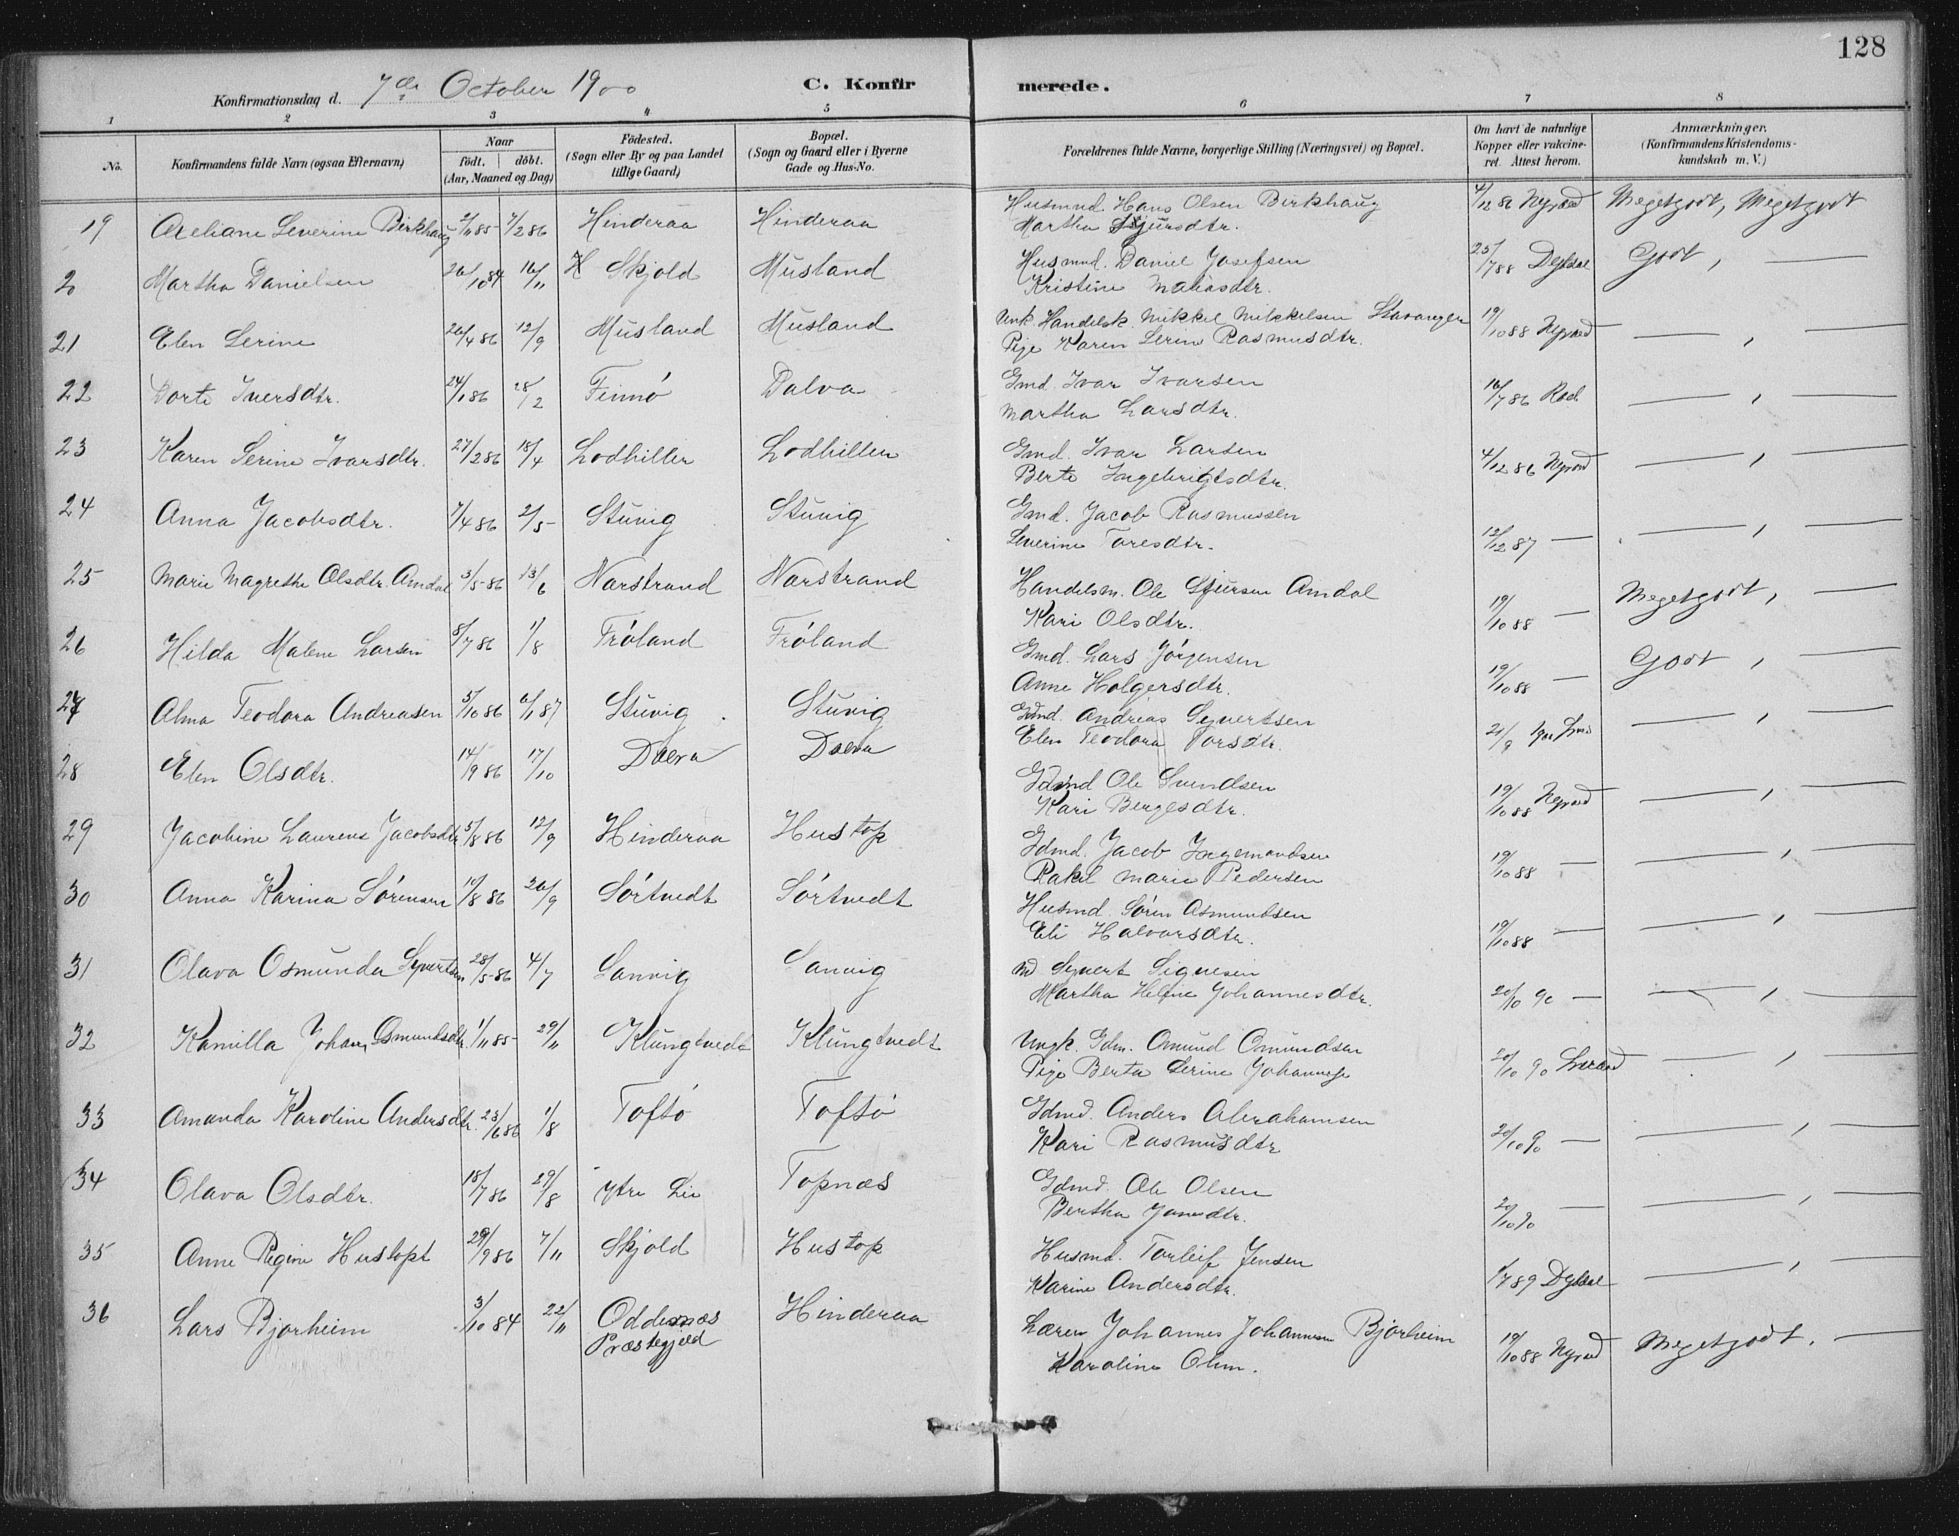 128
Konfirmationsdag d. 7de October 1900 C. Konfirmerede.
1 2 3 4 5 6 7 8
No. Konfirmandens fulde Navn (ogsaa Efternavn) Naar födt. döbt. (Aar, Maaned og Dag) Födested. (Sogn eller By og paa Landet tillige Gaard) Bopæl. (Sogn og Gaard eller i Byerne Gade og Hus-No. Forældrenes fulde Navne, borgerlige Stilling (Næringsvei) og Bopæl. Om havt de naturlige Kopper eller vakcineret. Attest herom. Anmærkninger. (Konfirmandens Kristendomskundskab m. V.)
19 Severine Birkhaug 2/11 85 7/2 86 Hinderaa Hinderaa Husmnd. Hans Olsen Birkhaug 4/12 86 Nyrød Megetgodt, Megetgodt
Martha Sjursdtr.
20 Martha Danielsen 26/10 84 16/11 Skjold Musland Husmnd. Daniel Josefsen 25/7 88 Godt, —
Kristine
21 Elen Serine 26/4 86 12/9 Musland Musland Unk. Handelsk. Mikkel Mikkelsen Stavanger 19/10 88 Nyrød — , —
Pige Karen Serine Rasmusdtr.
22 Dorte Iversdtr. 24/1 86 28/2 Finnö Dalva Gmd. Ivar Ivarsen 16/7 86 — , —
Martha Larsdtr.
23 Karen Serine Ivarsdtr. 27/2 86 18/4 Lodhiller Lodhillen Gmd. Ivar Larsen 4/12 86 Nyrød — , —
Berte Ingebrigtsdtr.
24 Anna Jacobsdtr. 7/4 86 2/5 Stuvig Stuvig Gmd. Jacob Rasmussen 12/12 87 — — , —
Severine Toresdtr.
25 Marie Magrethe Olsdtr. Amdal 3/5 86 13/6 Narstrand Narstrand Handelsm. Ole Sjursen Amdal 19/10 88 — Megetgodt, —
Kari Olsdtr.
26 Hilda Malene Larsen 8/7 86 1/8 Fröland Fröland Gmd. Lars Jörgensen 19/10 88 — Godt , —
Anne Holgersdtr.
27 Alma Teodora Andreasen 5/10 86 6/1 87 Stuvig Stuvig Gdmd. Andreas Syvertsen 21/9 — , —
Elen Teodora Torsdtr.
28 Elen Olsdtr. 14/9 86 17/10 Doeva Doeva Gdmd Ole Svendsen 19/10 88 Nyrød — , —
Kari Bergesdtr.
29 Jacobine Laurense Jacobsdtr 5/8 86 12/9 Hinderaa Hustop Gdmd. Jacob Ingemundsen 19/10 88 — — , —
Rakel Marie Pedersen
30 Anna Karina Sörensen 10/8 86 26/9 Sörtvedt Sörtvedt Husmd. Sören Osmundsen 19/10 88 — — , —
Eli Halvorsdtr.
31 Olava Osmunda Syvertsen 28/5 86 4/7 Sanvig Sanvig Syvert Signesen 20/10 90 — — , —
Martha Helene Johannesdtr.
32 Kamilla Johan Osmundsdtr. 1/11 85 29/11 Klungtvedt Klungtvedt Ungk. Gdm. Omund Omundsen 20/10 90 — , —
Pige Berta Serine Johannes
33 Amanda Karoline Andersdtr. 23/6 86 1/8 Toftö Toftö Gdmd. Anders Abrahamsen 20/10 90 — — , —
Kari Rasmusdtr
34 Olava Olsdtr. 18/7 86 29/8 ytre Lie Topnæs Gdmd. Ole Olsen 20/10 90 — — , —
Bertha Jansdtr.
35 Anne Regine Hustopt 29/9 86 7/11 Skjold Hustop Husmd. Torleif Jensen 1/7 89 — , —
Karine Andersdtr.
36 Lars Bjorheim 3/10 84 22/11 Oddernæs Præstegjeld Hinderaa Lærer Johannes Johannesen Bjorheim 19/10 88 Nyrød Megetgodt. —
Karoline Olsen.